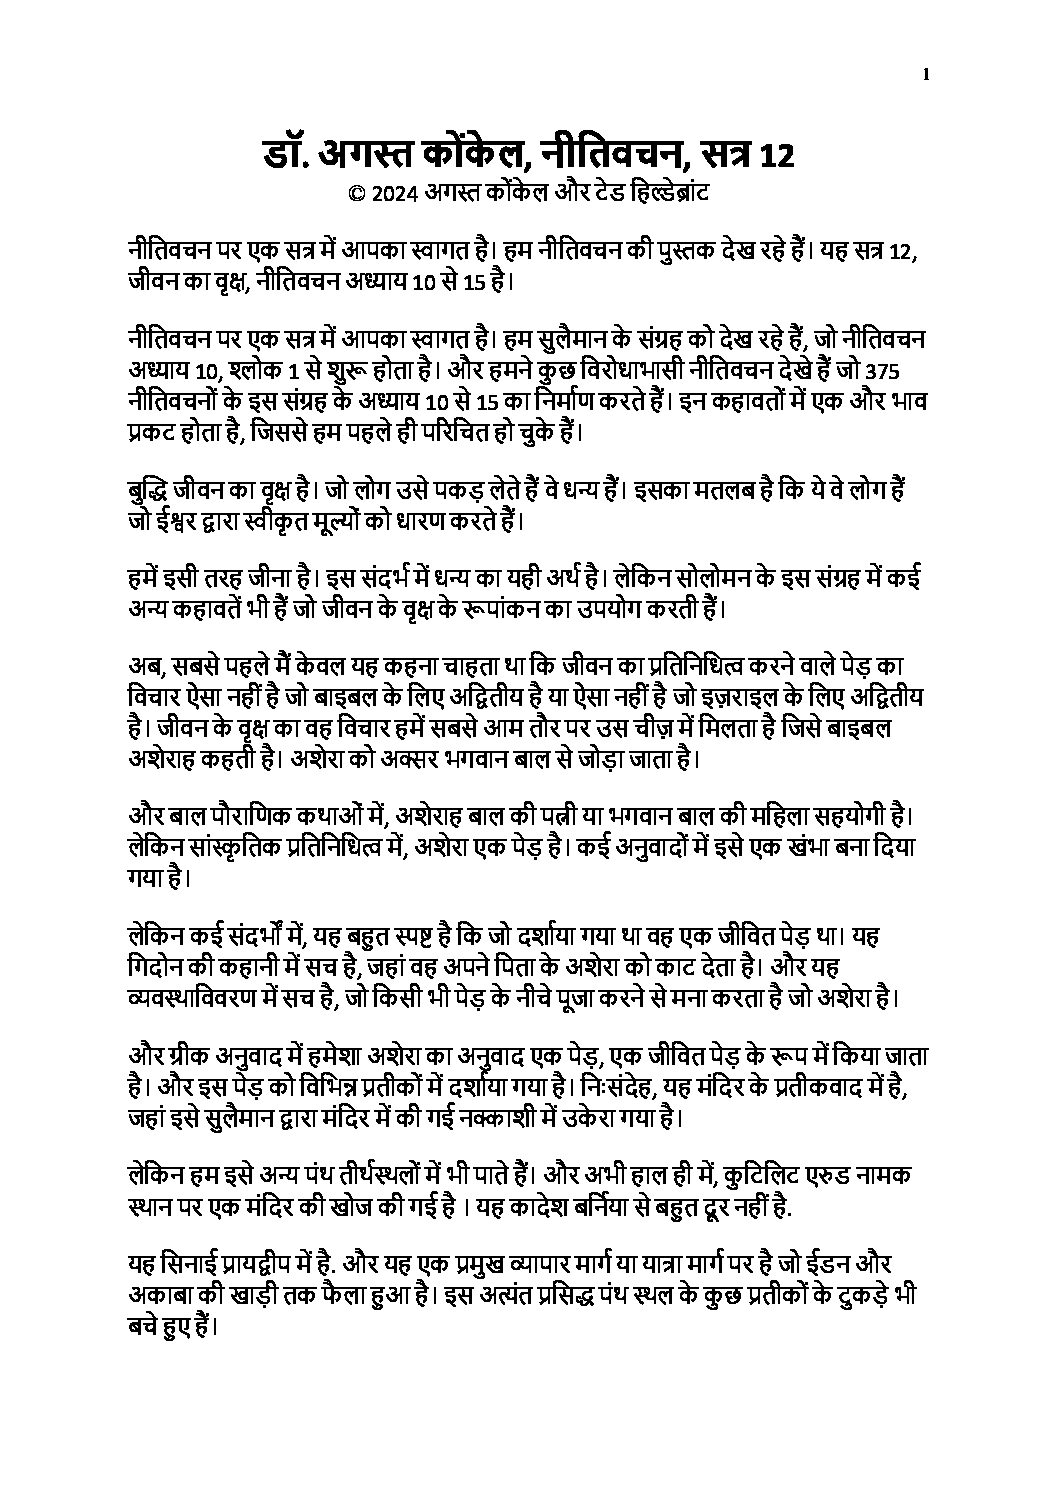 1
डॉ. अगस्त कोंकेल, नीतिवचन, सत्र 12
© 2024 अगस्त कोंकेल और टेड हिल्डेब्रांट
नीतिवचन पर एक सत्र में आपका स्वागत है। हम नीतिवचन की पुस्तक देख रहे हैं। यह सत्र 12,
जीवन का वृक्ष, नीतिवचन अध्याय 10 से 15 है।
नीतिवचन पर एक सत्र में आपका स्वागत है। हम सुलैमान के संग्रह को देख रहे हैं, जो नीतिवचन
अध्याय 10, श्लोक 1 से शुरू होता है। और हमने कुछ विरोधाभासी नीतिवचन देखे हैं जो 375
नीतिवचनों के इस संग्रह के अध्याय 10 से 15 का निर्माण करते हैं। इन कहावतों में एक और भाव
प्रकट होता है, जिससे हम पहले ही परिचित हो चुके हैं।
बुद्धि जीवन का वृक्ष है। जो लोग उसे पकड़ लेते हैं वे धन्य हैं। इसका मतलब है कि ये वे लोग हैं
जो ईश्वर द्वारा स्वीकृत मूल्यों को धारण करते हैं।
हमें इसी तरह जीना है। इस संदर्भ में धन्य का यही अर्थ है। लेकिन सोलोमन के इस संग्रह में कई
अन्य कहावतें भी हैं जो जीवन के वृक्ष के रूपांकन का उपयोग करती हैं।
अब, सबसे पहले मैं केवल यह कहना चाहता था कि जीवन का प्रतिनिधित्व करने वाले पेड़ का
विचार ऐसा नहीं है जो बाइबल के लिए अद्वितीय है या ऐसा नहीं है जो इज़राइल के लिए अद्वितीय
है। जीवन के वृक्ष का वह विचार हमें सबसे आम तौर पर उस चीज़ में मिलता है जिसे बाइबल
अशेराह कहती है। अशेरा को अक्सर भगवान बाल से जोड़ा जाता है।
और बाल पौराणिक कथाओं में, अशेराह बाल की पत्नी या भगवान बाल की महिला सहयोगी है।
लेकिन सांस्कृतिक प्रतिनिधित्व में, अशेरा एक पेड़ है। कई अनुवादों में इसे एक खंभा बना दिया
गया है।
लेकिन कई संदर्भों में, यह बहुत स्पष्ट है कि जो दर्शाया गया था वह एक जीवित पेड़ था। यह
गिदोन की कहानी में सच है, जहां वह अपने पिता के अशेरा को काट देता है। और यह
व्यवस्थाविवरण में सच है, जो किसी भी पेड़ के नीचे पूजा करने से मना करता है जो अशेरा है।
और ग्रीक अनुवाद में हमेशा अशेरा का अनुवाद एक पेड़, एक जीवित पेड़ के रूप में किया जाता
है। और इस पेड़ को विभिन्न प्रतीकों में दर्शाया गया है। निःसंदेह, यह मंदिर के प्रतीकवाद में है,
जहां इसे सुलैमान द्वारा मंदिर में की गई नक्काशी में उकेरा गया है।
लेकिन हम इसे अन्य पंथ तीर्थस्थलों में भी पाते हैं। और अभी हाल ही में, कुटिलिट एरुड नामक
स्थान पर एक मंदिर की खोज की गई है । यह कादेश बर्निया से बहुत दूर नहीं है.
यह सिनाई प्रायद्वीप में है. और यह एक प्रमुख व्यापार मार्ग या यात्रा मार्ग पर है जो ईडन और
अकाबा की खाड़ी तक फैला हुआ है। इस अत्यंत प्रसिद्ध पंथ स्थल के कुछ प्रतीकों के टुकड़े भी
बचे हुए हैं।